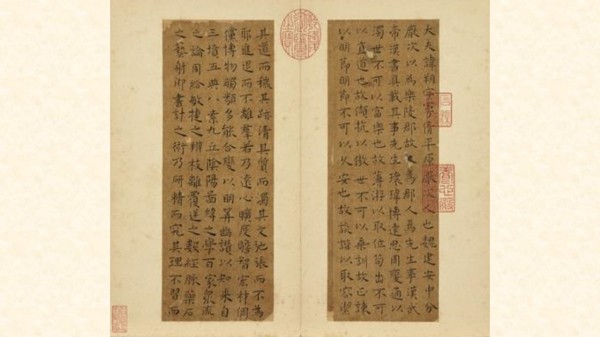 大夫諱朔字曼倩平原厭次人也魏建安中分
厭次以為樂陵郡故又為郡人焉先生事漢武
帝漢書具載其事先生瓌瑋博達思周變通以
濁世不可以富樂也故薄游以取位苟出不可
以直道也故頡抗以傲世不可以垂訓故正諫
以明節明節不可以久安也故詼諧以取容潔
其道而穢其跡清其質而濁其文弛張而不為
邪進退而不離群若乃遠心曠度贍智宏材倜
儻博物觸類多能合變以明筭幽讚以知來自
三墳五典八索九丘陰陽圖緯之學百家眾流
之論周給敏捷之辨枝離覆逆之數經脈藥石
之藝射御書計之術乃研精而究其理不習而